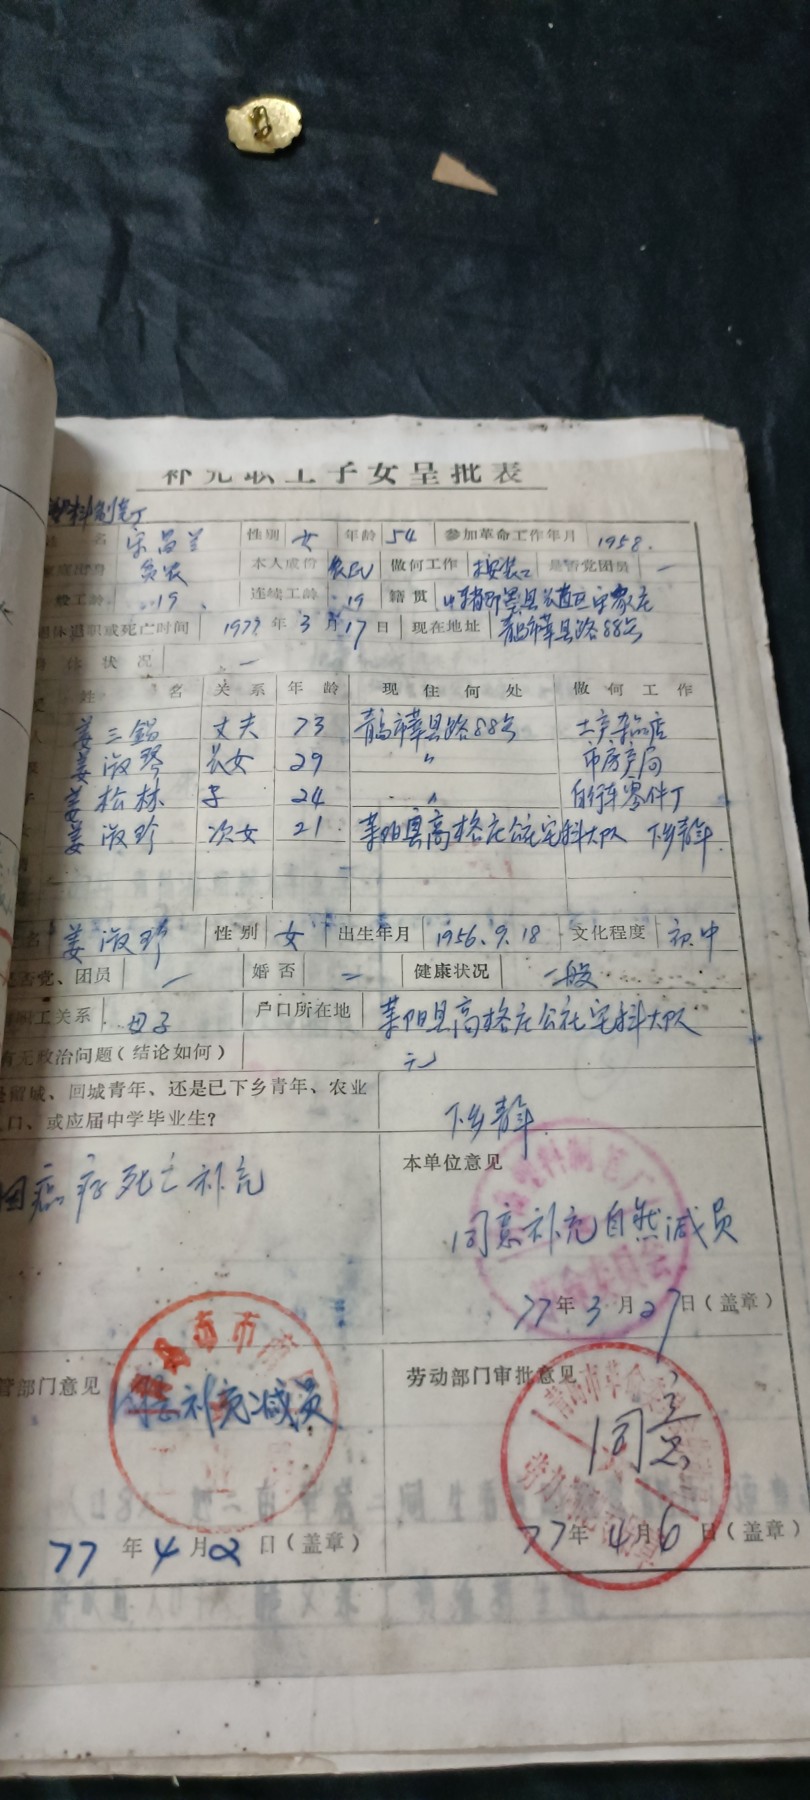 补充职工子女呈批表
塑料制
名 宋 兰 性别 女 年龄 54 参加革命工作年月 1958.
家庭出身 贫农 本人成份 农民 做何工作 是否党团员 一
般工龄 19 连续工龄 19 籍贯 山东省即墨县 区宋家庄
退休退职或死亡时间 1977年3月17日 现在地址 青岛市莘县路88号
身体状况 一
姓名 关系 年龄 现住何处 做何工作
姜三 丈夫 73 青岛市莘县路88号 土产杂品店
姜淑琴 长女 29 〃 市房产局
姜松林 子 24 〃 自行车零件厂
姜淑珍 次女 21 莱阳县高格庄公社宅科大队 下乡青年
名 姜淑珍 性别 女 出生年月 1956.9.18 文化程度 初中
是否党、团员 一 婚否 一 健康状况 一般
职工关系 母子 户口所在地 莱阳县高格庄公社宅科大队
有无政治问题(结论如何) 无
是留城、回城青年、还是已下乡青年、农业
人口、或应届中学毕业生? 下乡青年
因癌症死亡补充
本单位意见
同意补充自然减员
77年3月27日(盖章)
管部门意见
同意补充减员
77年4月2日(盖章)
劳动部门审批意见
同意
77年4月6日(盖章)